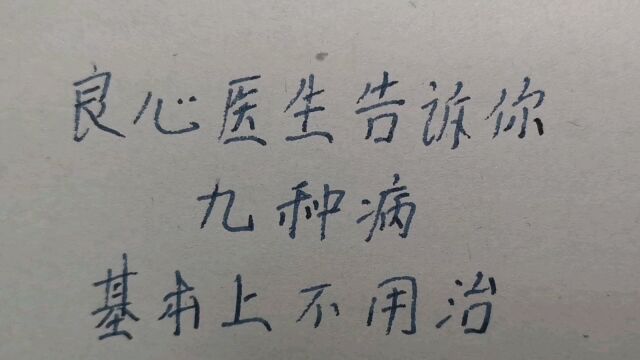 良心医生告诉你
九种病
基本上不用治